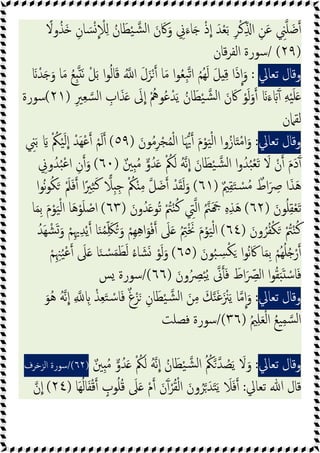 أَضَلَّنِي عَنِ الذِّكْرِ بَعْدَ إِذْ جَاءَنِي وَكَانَ الشَّيْطَانُ لِلْإِنْسَانِ خَذُولًا
(٢٩) /سورة الفرقان
وقال تعالي: وَإِذَا قِيلَ لَهُمُ اتَّبِعُوا مَا أَنْزَلَ اللَّهُ قَالُوا بَلْ نَتَّبِعُ مَا وَجَدْنَا
عَلَيْهِ آبَاءَنَا أَوَلَوْ كَانَ الشَّيْطَانُ يَدْعُوهُمْ إِلَى عَذَابِ السَّعِيرِ (٢١)سورة
لقمان
وقال تعالي: وَامْتَازُوا الْيَوْمَ أَيُّهَا الْمُجْرِمُونَ (٥٩) أَلَمْ أَعْهَدْ إِلَيْكُمْ يَا بَنِي
آدَمَ أَنْ لَا تَعْبُدُوا الشَّيْطَانَ إِنَّهُ لَكُمْ عَدُوٌّ مُبِينٌ (٦٠) وَأَنِ اعْبُدُونِي
هَذَا صِرَاطٌ مُسْتَقِيمٌ (٦١) وَلَقَدْ أَضَلَّ مِنْكُمْ جِبِلًّا كَثِيرًا أَفَلَمْ تَكُونُوا
تَعْقِلُونَ (٦٢) هَذِهِ جَهَنَّمُ الَّتِي كُنْتُمْ تُوعَدُونَ (٦٣) اصْلَوْهَا الْيَوْمَ بِمَا
كُنْتُمْ تَكْفُرُونَ (٦٤) الْيَوْمَ نَخْتِمُ عَلَى أَفْوَاهِهِمْ وَتُكَلِّمُنَا أَيْدِيهِمْ وَتَشْهَدُ
أَرْجُلُهُمْ بِمَا كَانُوا يَكْسِبُونَ (٦٥) وَلَوْ نَشَاءُ لَطَمَسْنَا عَلَى أَعْيُنِهِمْ
فَاسْتَبَقُوا الصِّرَاطَ فَأَنَّى يُبْصِرُونَ (٦٦)/سورة يس
وقال تعالي: وَإِمَّا يَنْزَغَنَّكَ مِنَ الشَّيْطَانِ نَزْغٌ فَاسْتَعِذْ بِاللَّهِ إِنَّهُ هُوَ
السَّمِيعُ الْعَلِيمُ (٣٦)/سورة فصلت
وقال تعالي: وَلَا يَصُدَّنَّكُمُ الشَّيْطَانُ إِنَّهُ لَكُمْ عَدُوٌّ مُبِينٌ (٦٢)/سورة الزخرف
قال الله تعالي: أَفَلَا يَتَدَبَّرُونَ الْقُرْآنَ أَمْ عَلَى قُلُوبٍ أَقْفَالُهَا (٢٤) إِنَّ